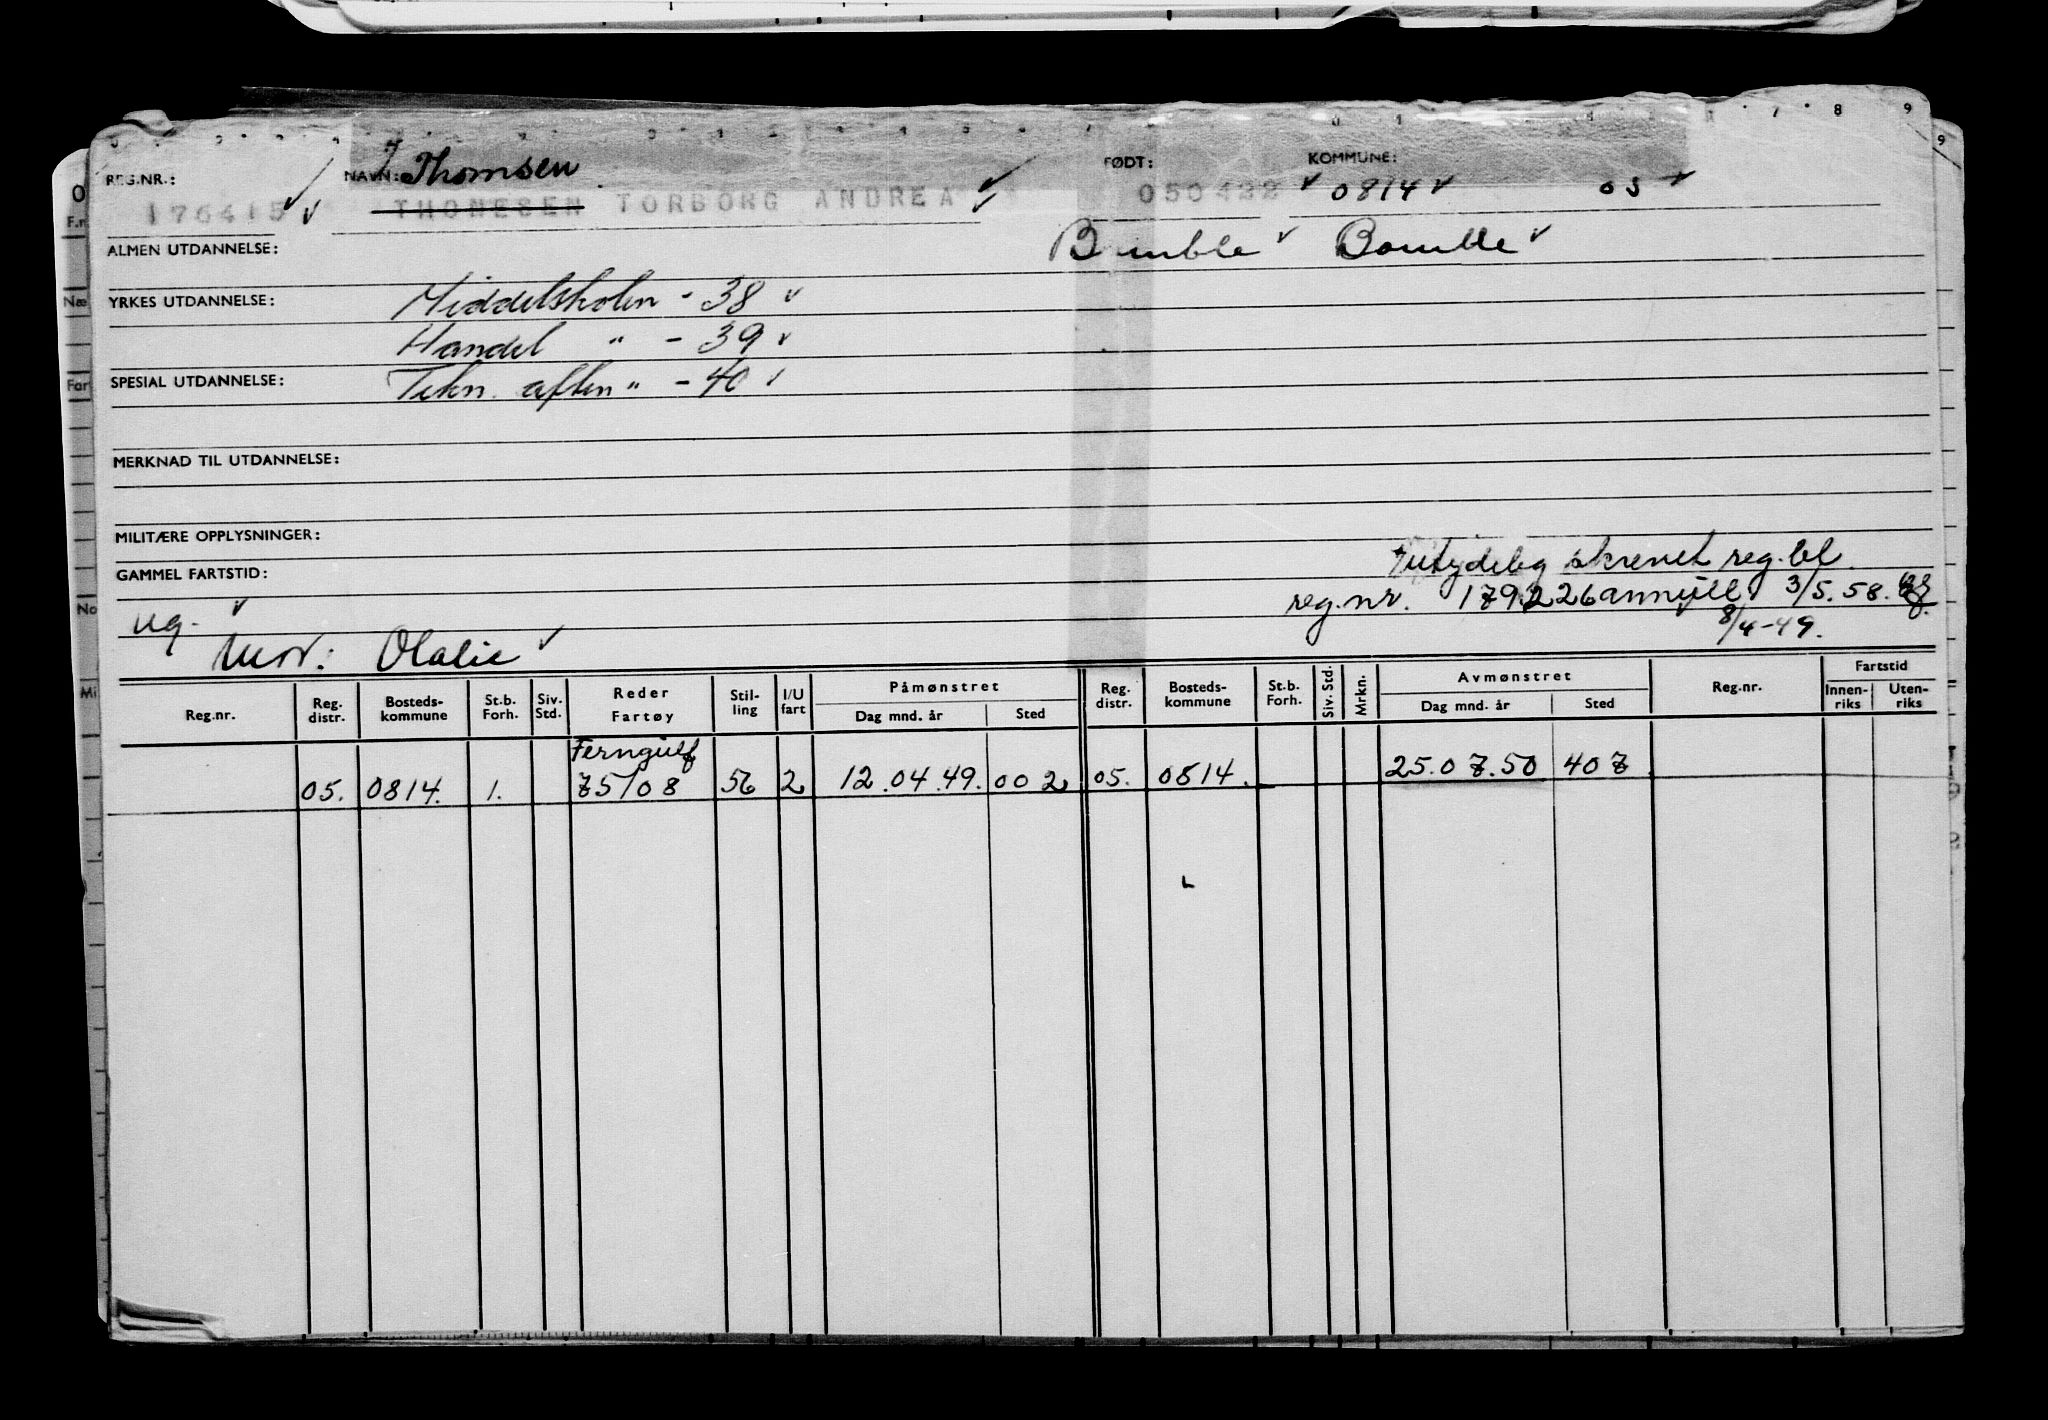 REG.NR.: NAVN: Thomsen FØDT: KOMMUNE:
176415 THOMESEN TORBORG ANDREA 050422 0814 05
ALMEN UTDANNELSE: Bamble Bamble
YRKES UTDANNELSE: Middelskolen - 38
Handel " - 39
SPESIAL UTDANNELSE: Tekn. aften " - 40
MERKNAD TIL UTDANNELSE:
MILITÆRE OPPLYSNINGER:
utydelig skrevet reg.bl.
GAMMEL FARTSTID:
reg.nr. 179226 annull 3/5.58.
ug. 8/4-49.
Mor: Olalie
Reg.nr. Reg. distr. Bosteds-kommune St.b. Forh. Siv. Std. Reder Fartøy Stil-ling I/U fart Påmønstret Dag mnd. år Sted Reg. distr. Bosteds-kommune St.b. Forh. Siv. Std. Mrkn. Avmønstret Dag mnd. år Sted Reg.nr. Fartstid Innen-riks Uten-riks
Ferngulf
05. 0814. 1. 75108 56 2 12.04.49. 002 05. 0814. 25.07.50 407